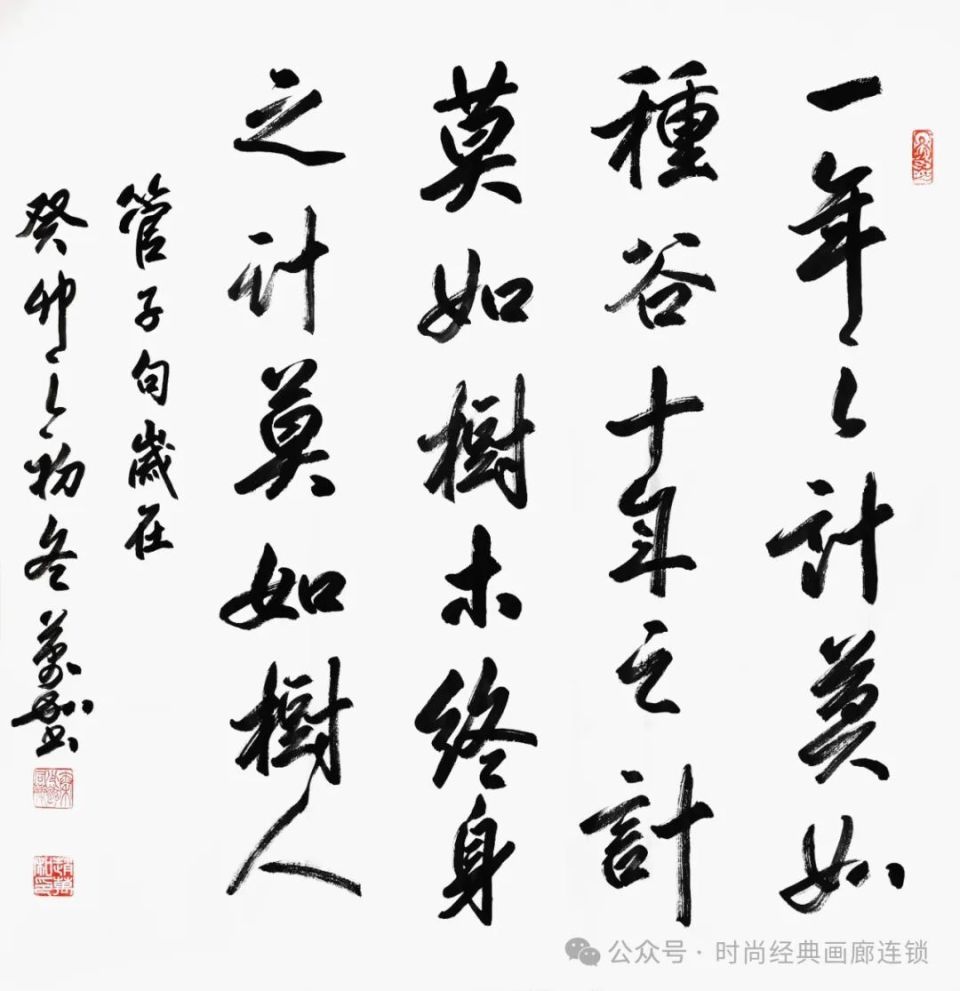 一年之計莫如
種谷十年之計
莫如樹木終身
之计莫如樹人
管子句歲在
癸卯之初冬萬
公众号·时尚经典画廊连锁